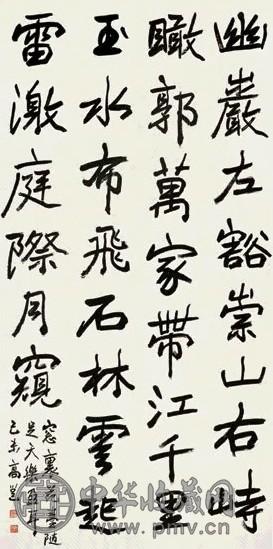 幽巖左豁崇山右峙
瞰郭萬家帶江千里
玉水布飛石林雲起
雷激庭際月窺
窓裏花雪隨
足天樂盈耳
己未高
中华收藏网